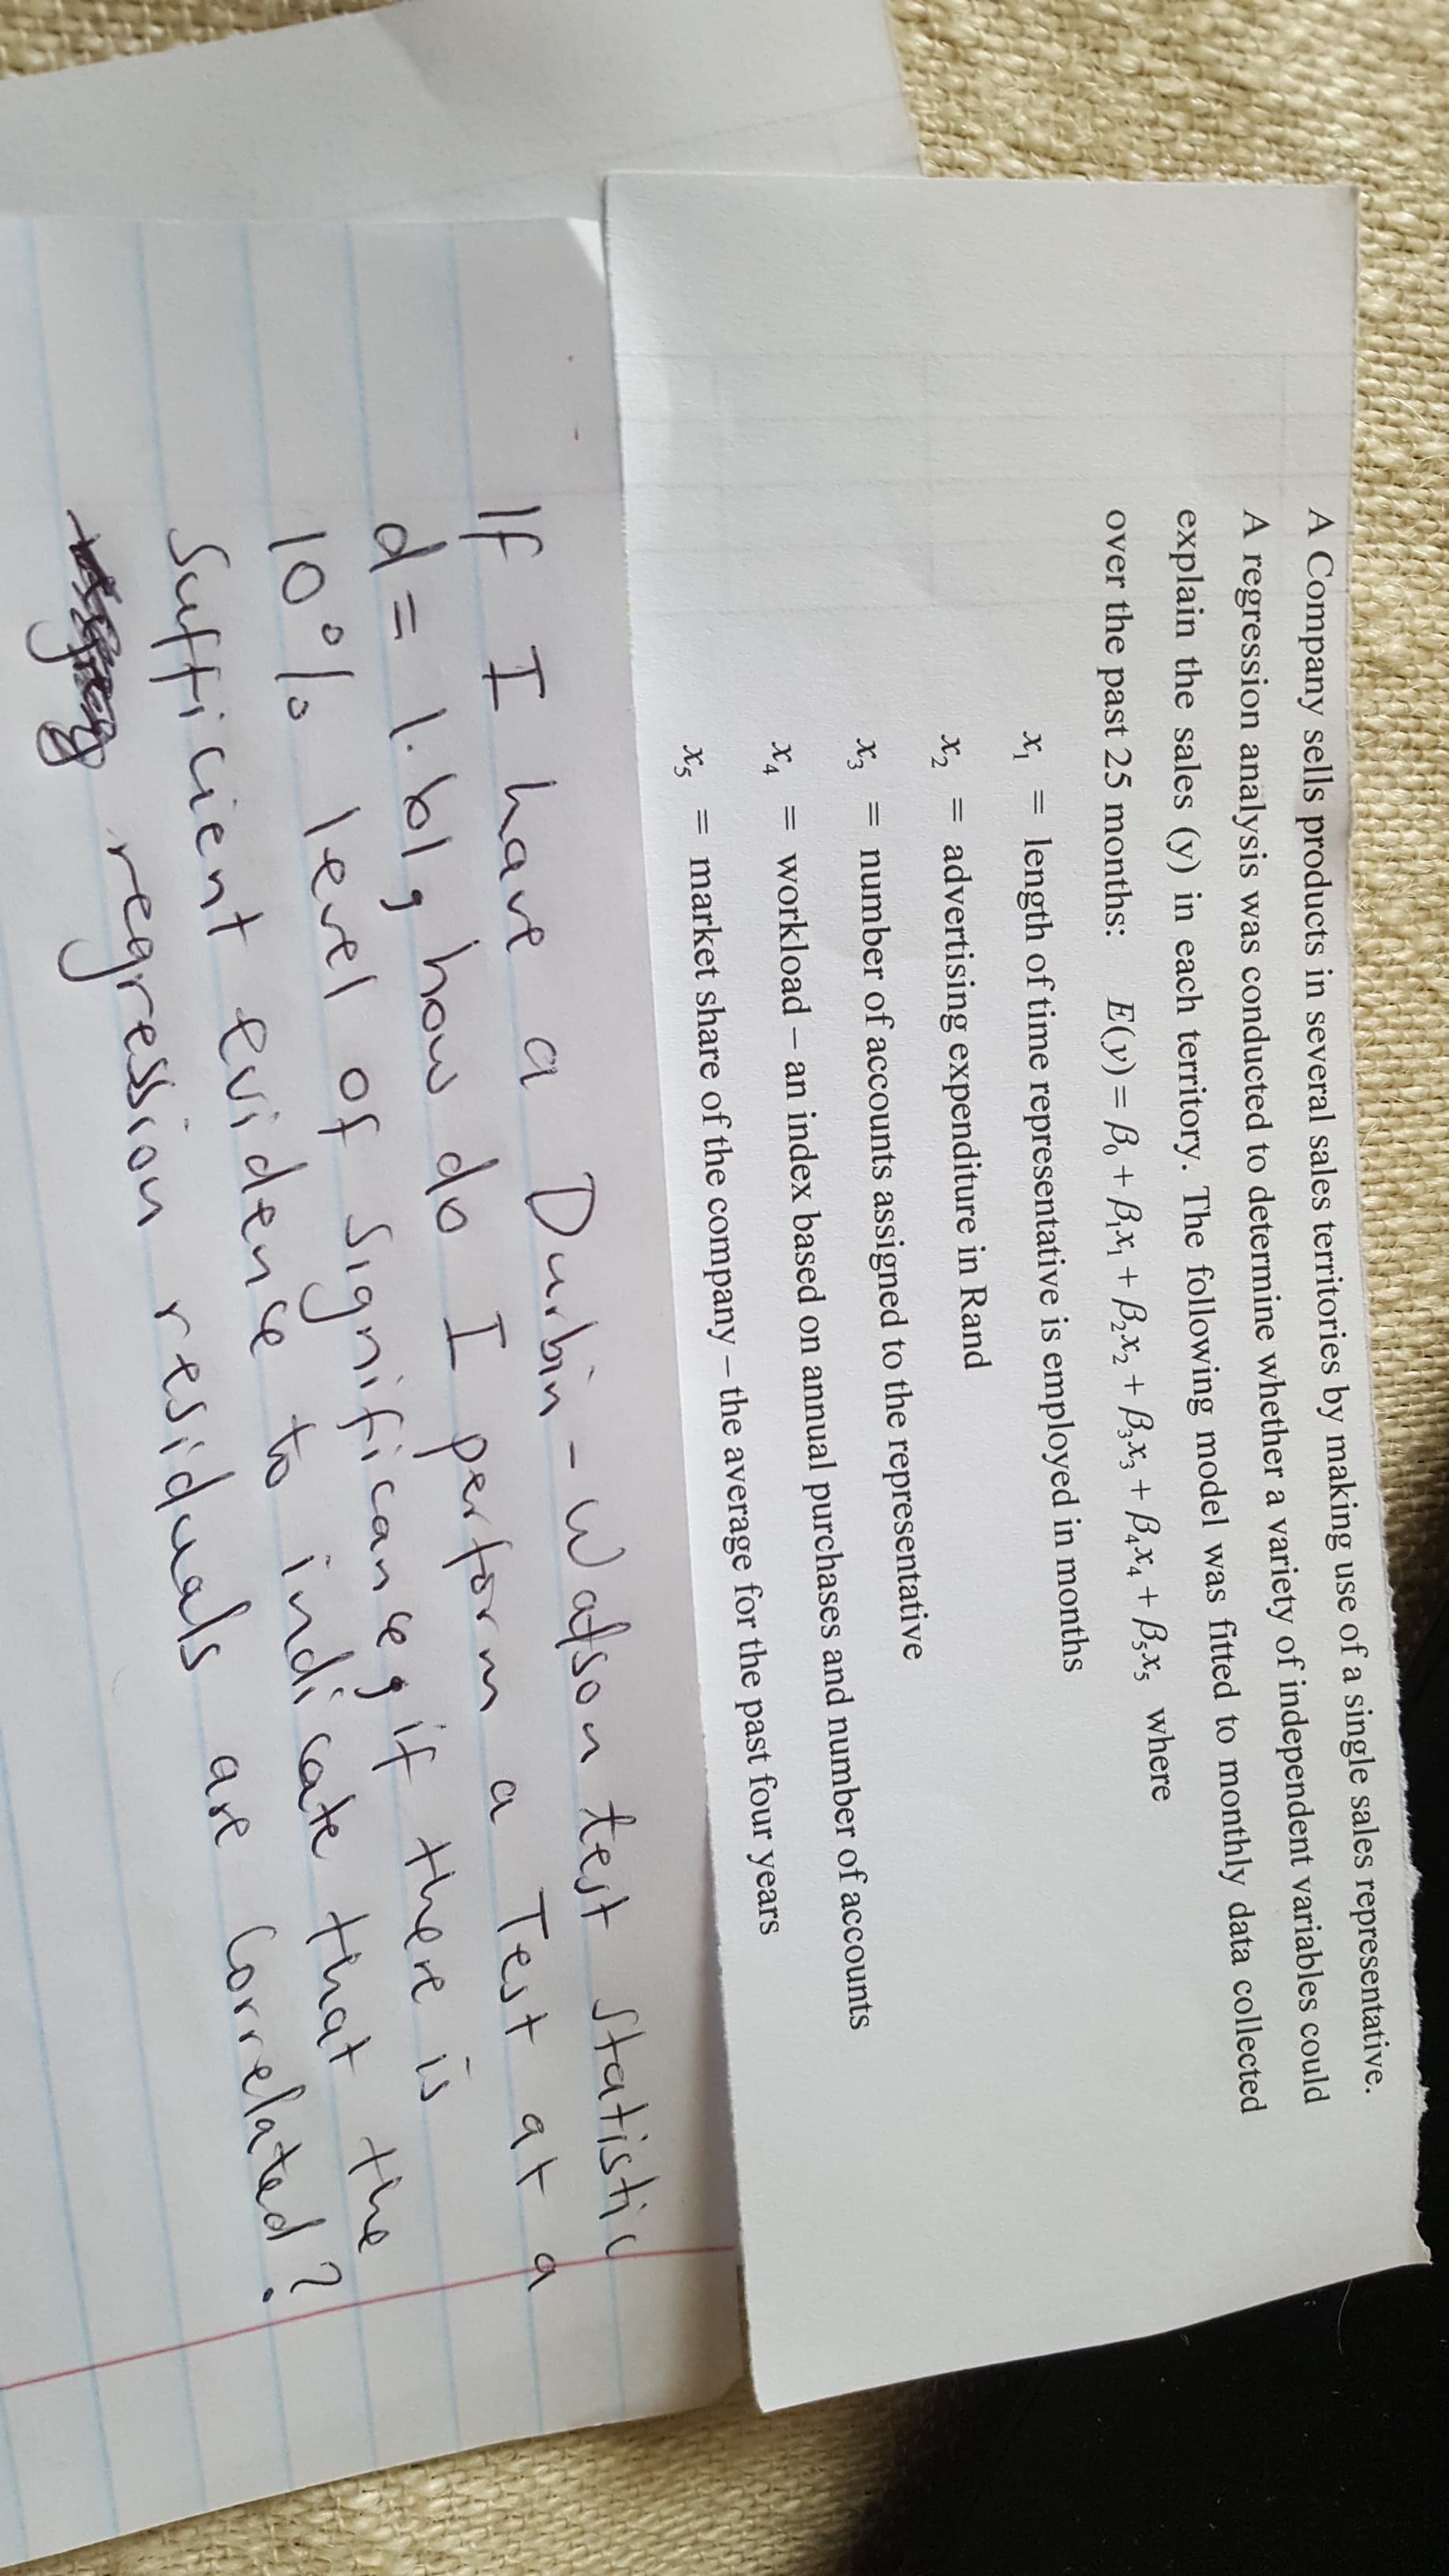 A Company sells products in several sales territories by making use of a single sales representative.
A regression analysis was conducted to determine whether a variety of independent variables could
explain the sales (y) in each territory. The following model was fitted to monthly data collected
over the past 25 months: E(y) = β₀ + β₁x₁ + β₂x₂ + β₃x₃ + β₄x₄ + β₅x₅ where
x₁ = length of time representative is employed in months
x₂ = advertising expenditure in Rand
x₃ = number of accounts assigned to the representative
x₄ = workload – an index based on annual purchases and number of accounts
x₅ = market share of the company – the average for the past four years
If I have a Durbin-Watson test statistic
d = 1.61, how do I perform a Test at a
10% level of significance, if there is
sufficient evidence to indicate that the
regression residuals are correlated?